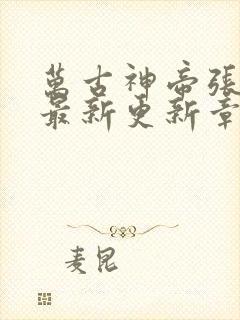 萬古神帝張
最新更新章
麦昆